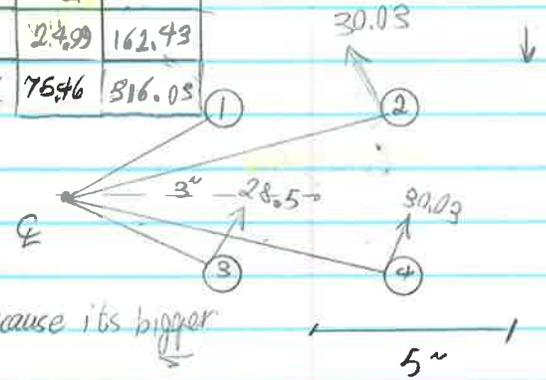 30.03
24.99 162.43
75.46 316.03
1 2
3" 28.5
℄ 30.03
3 4
cause its bigger
5"